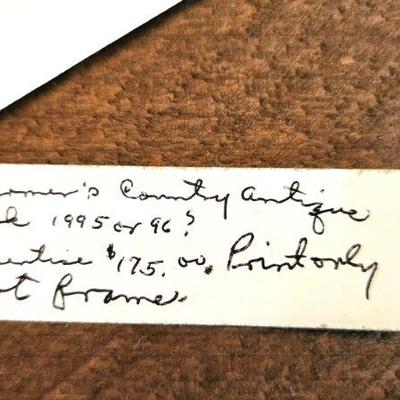 omer's Country Antique
1995 or 96?
$175.00. Print only
ot frame.